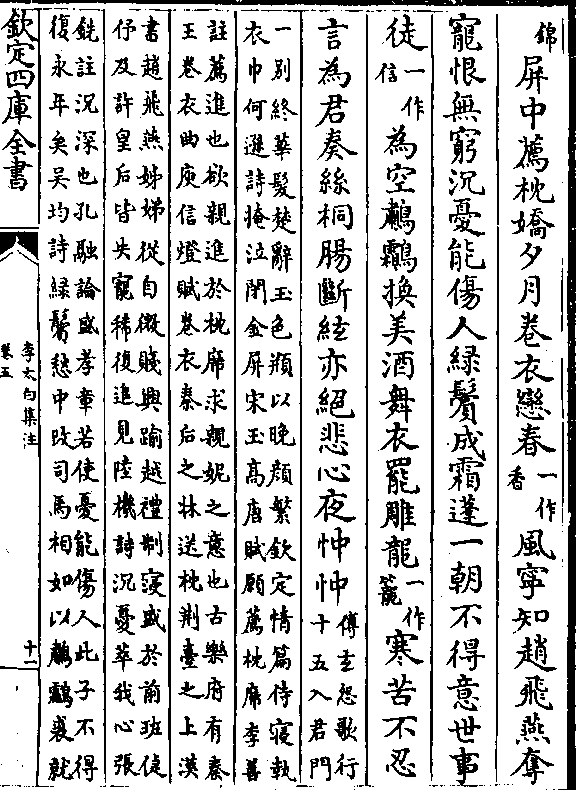 錦屏中薦枕嬌夕月卷衣戀春一作香風寧知趙飛燕奪
寵恨無窮沉憂能傷人緑鬢成霜蓬一朝不得意世事
徒一作信為空鷫鸘換美酒舞衣罷雕龍一作籠寒苦不忍
言為君奏絲桐腸斷絃亦絶悲心夜忡忡傅玄怨歌行十五入君門
一別終華髮楚辭玉色頩以晚顔繁欽定情篇侍寢執
衣巾何遜詩掩泣閉金屏宋玉高唐賦願薦枕席李善
註薦進也欲親進於枕席求親妮之意也古樂府有秦
王卷衣曲庾信燈賦卷衣秦后之牀送枕荆臺之上漢
書趙飛燕姊娣從自微賤興踰越禮制寖盛於前班倢
伃及許皇后皆失寵稀復進見陸機詩沉憂萃我心張
銑註沉深也孔融論盛孝章若使憂能傷人此子不得
復永年矣吴均詩緑鬢愁中改司馬相如以鷫鸘裘就
欽定四庫全書
李太白集注
卷五
十二